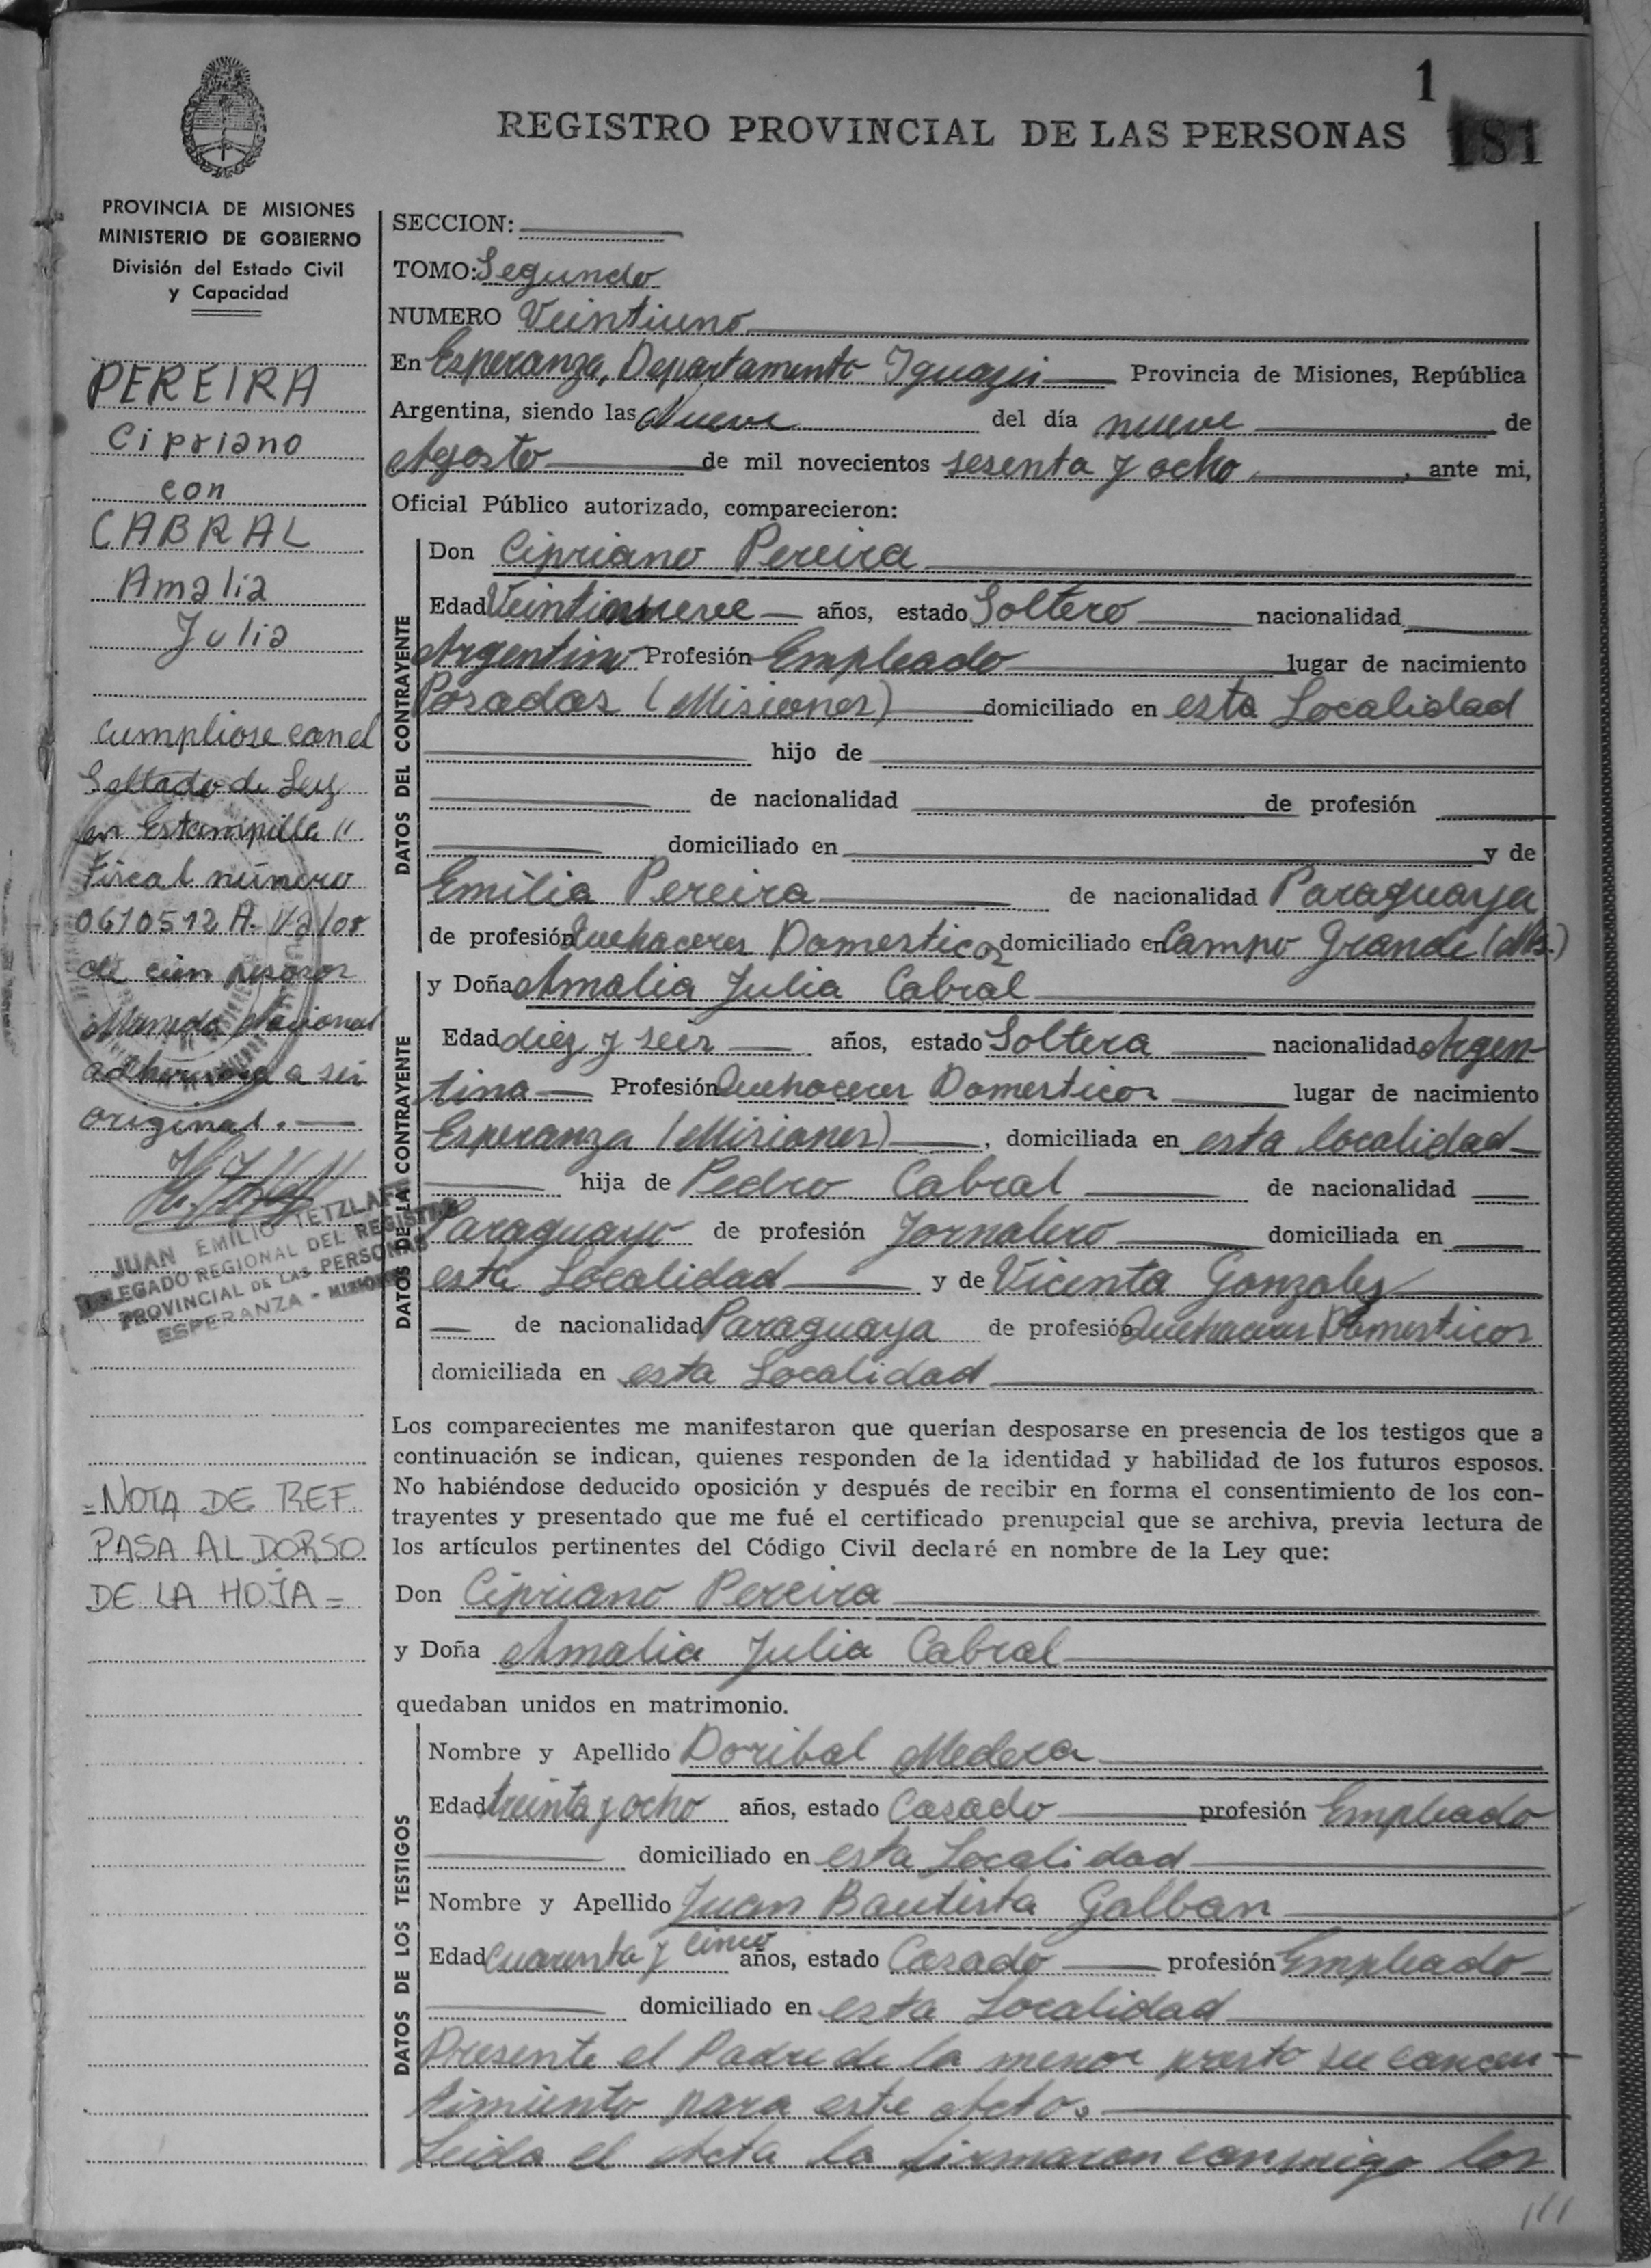 1
REGISTRO PROVINCIAL DE LAS PERSONAS 181
PROVINCIA DE MISIONES
MINISTERIO DE GOBIERNO
División del Estado Civil
y Capacidad
PEREIRA
Cipriano
con
CABRAL
Amalia
Julia
Cumpliose con el
Sellado de Ley
en Estampilla "
Fiscal número
0610512 A.
de cien pesos
Moneda Nacional
adherida a su
original.
JUAN EMILIO TETZLAFF
DELEGADO REGIONAL DEL REGISTRO
PROVINCIAL DE LAS PERSONAS
ESPERANZA - MISIONES
=NOTA DE REF.
PASA AL DORSO
DE LA HOJA=
SECCION:
TOMO: Segundo
NUMERO Veintiuno
En Esperanza, Departamento Iguazú Provincia de Misiones, República
Argentina, siendo las Nueve del día nueve de
Agosto de mil novecientos sesenta y ocho, ante mi,
Oficial Público autorizado, comparecieron:
DATOS DEL CONTRAYENTE
Don Cipriano Pereira
Edad Veintinueve años, estado Soltero nacionalidad
Argentino Profesión Empleado lugar de nacimiento
Posadas (Misiones) domiciliado en esta Localidad
hijo de
de nacionalidad de profesión
domiciliado en y de
Emilia Pereira de nacionalidad Paraguaya
de profesión Quehaceres Domesticos domiciliado en Campo Grande (Mns.)
DATOS DE LA CONTRAYENTE
y Doña Amalia Julia Cabral
Edad diez y seis años, estado Soltera nacionalidad Argen-
tina Profesión Quehaceres Domesticos lugar de nacimiento
Esperanza (Misiones), domiciliada en esta localidad
hija de Pedro Cabral de nacionalidad
Paraguayo de profesión Jornalero domiciliada en
esta Localidad y de Vicenta Gonzalez
de nacionalidad Paraguaya de profesión Quehaceres Domesticos
domiciliada en esta Localidad
Los comparecientes me manifestaron que querían desposarse en presencia de los testigos que a
continuación se indican, quienes responden de la identidad y habilidad de los futuros esposos.
No habiéndose deducido oposición y después de recibir en forma el consentimiento de los con-
trayentes y presentado que me fué el certificado prenupcial que se archiva, previa lectura de
los artículos pertinentes del Código Civil declaré en nombre de la Ley que:
Don Cipriano Pereira
y Doña Amalia Julia Cabral
quedaban unidos en matrimonio.
DATOS DE LOS TESTIGOS
Nombre y Apellido Doribal Medera
Edad treinta y ocho años, estado Casado profesión Empleado
domiciliado en esta Localidad
Nombre y Apellido Juan Bautista Galban
Edad Cuarenta y cinco años, estado Casado profesión Empleado
domiciliado en esta Localidad
Presente el Padre de la menor presto su concen-
timiento para este Acto.
Leida el Acta la firmaron conmigo los
///